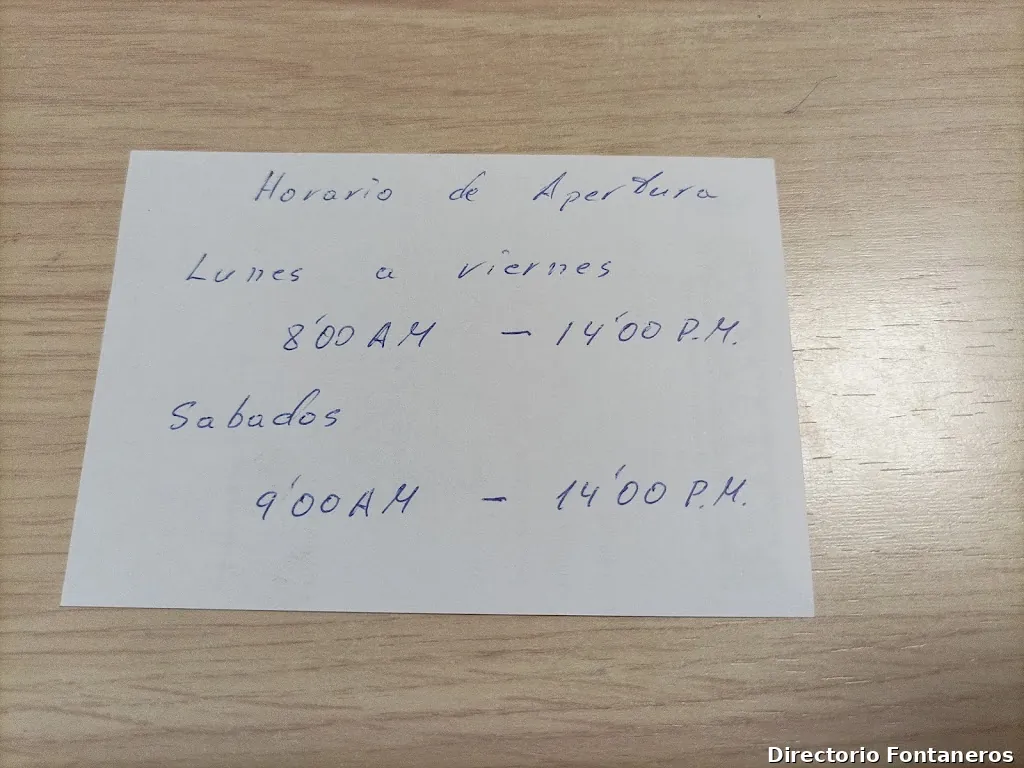 Horario de Apertura
Lunes a viernes
8'00 AM - 14'00 P.M.
Sabados
9'00 AM - 14'00 P.M.
Directorio Fontaneros